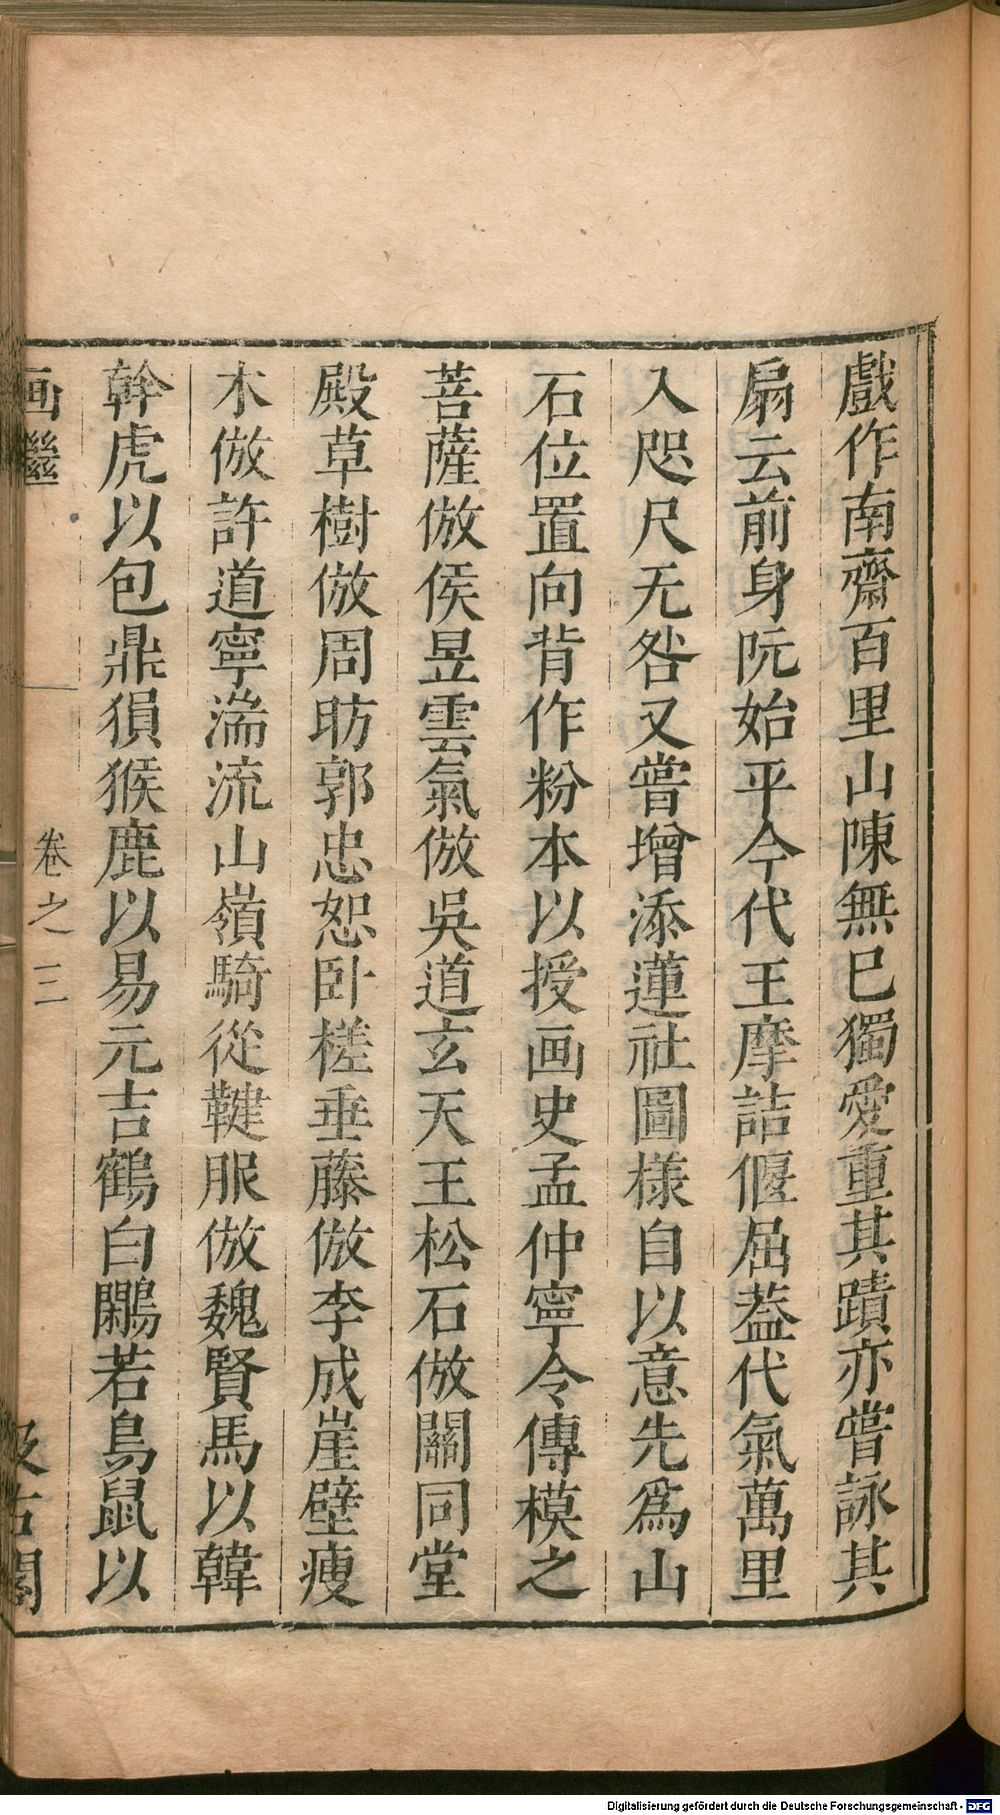 戲作南齋百里山陳無已獨愛重其蹟亦嘗詠其
扇云前身阮始平今代王摩詰偃屈葢代氣萬里
入咫尺无咎又嘗增添蓮社圖樣自以意先爲山
石位置向背作粉本以授画史孟仲寧令傳模之
菩薩倣侯昱雲氣倣吳道玄天王松石倣關同堂
殿草樹倣周昉郭忠恕卧槎垂藤倣李成崖壁瘦
木倣許道寧湍流山嶺騎從鞬服倣魏賢馬以韓
幹虎以包鼎猨猴鹿以易元吉鶴白鷴若鳥鼠以
画繼
卷之三
汲古閣
Digitalisierung gefördert durch die Deutsche Forschungsgemeinschaft - DFG